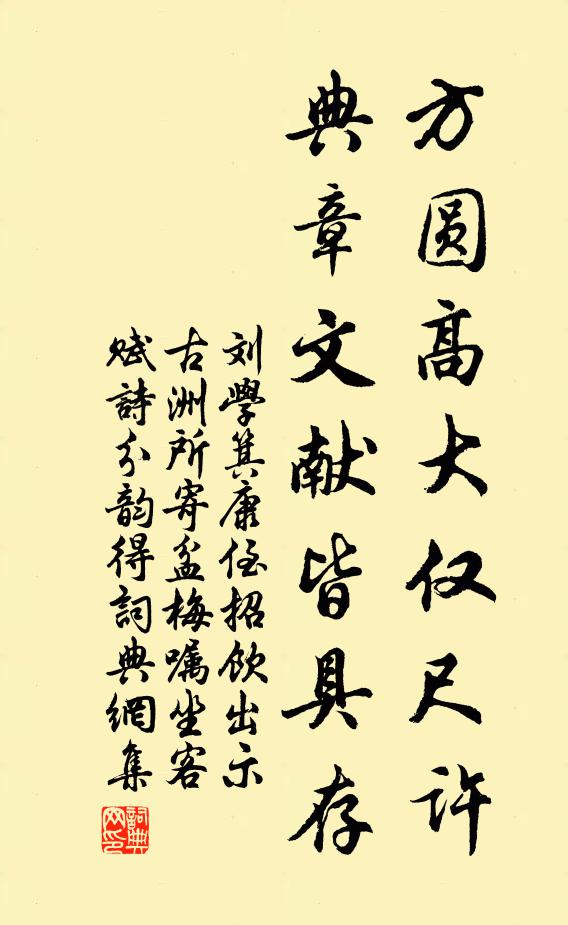 方圆高大仅尺许
典章文献皆具存
刘學箕康侄招飲出示
古洲所寄盆梅嘱坐客
赋詩分韵得詞典網集
詞典
网印